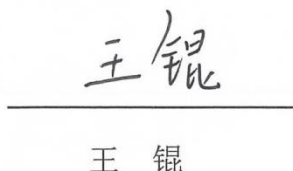 王锟
王 锟